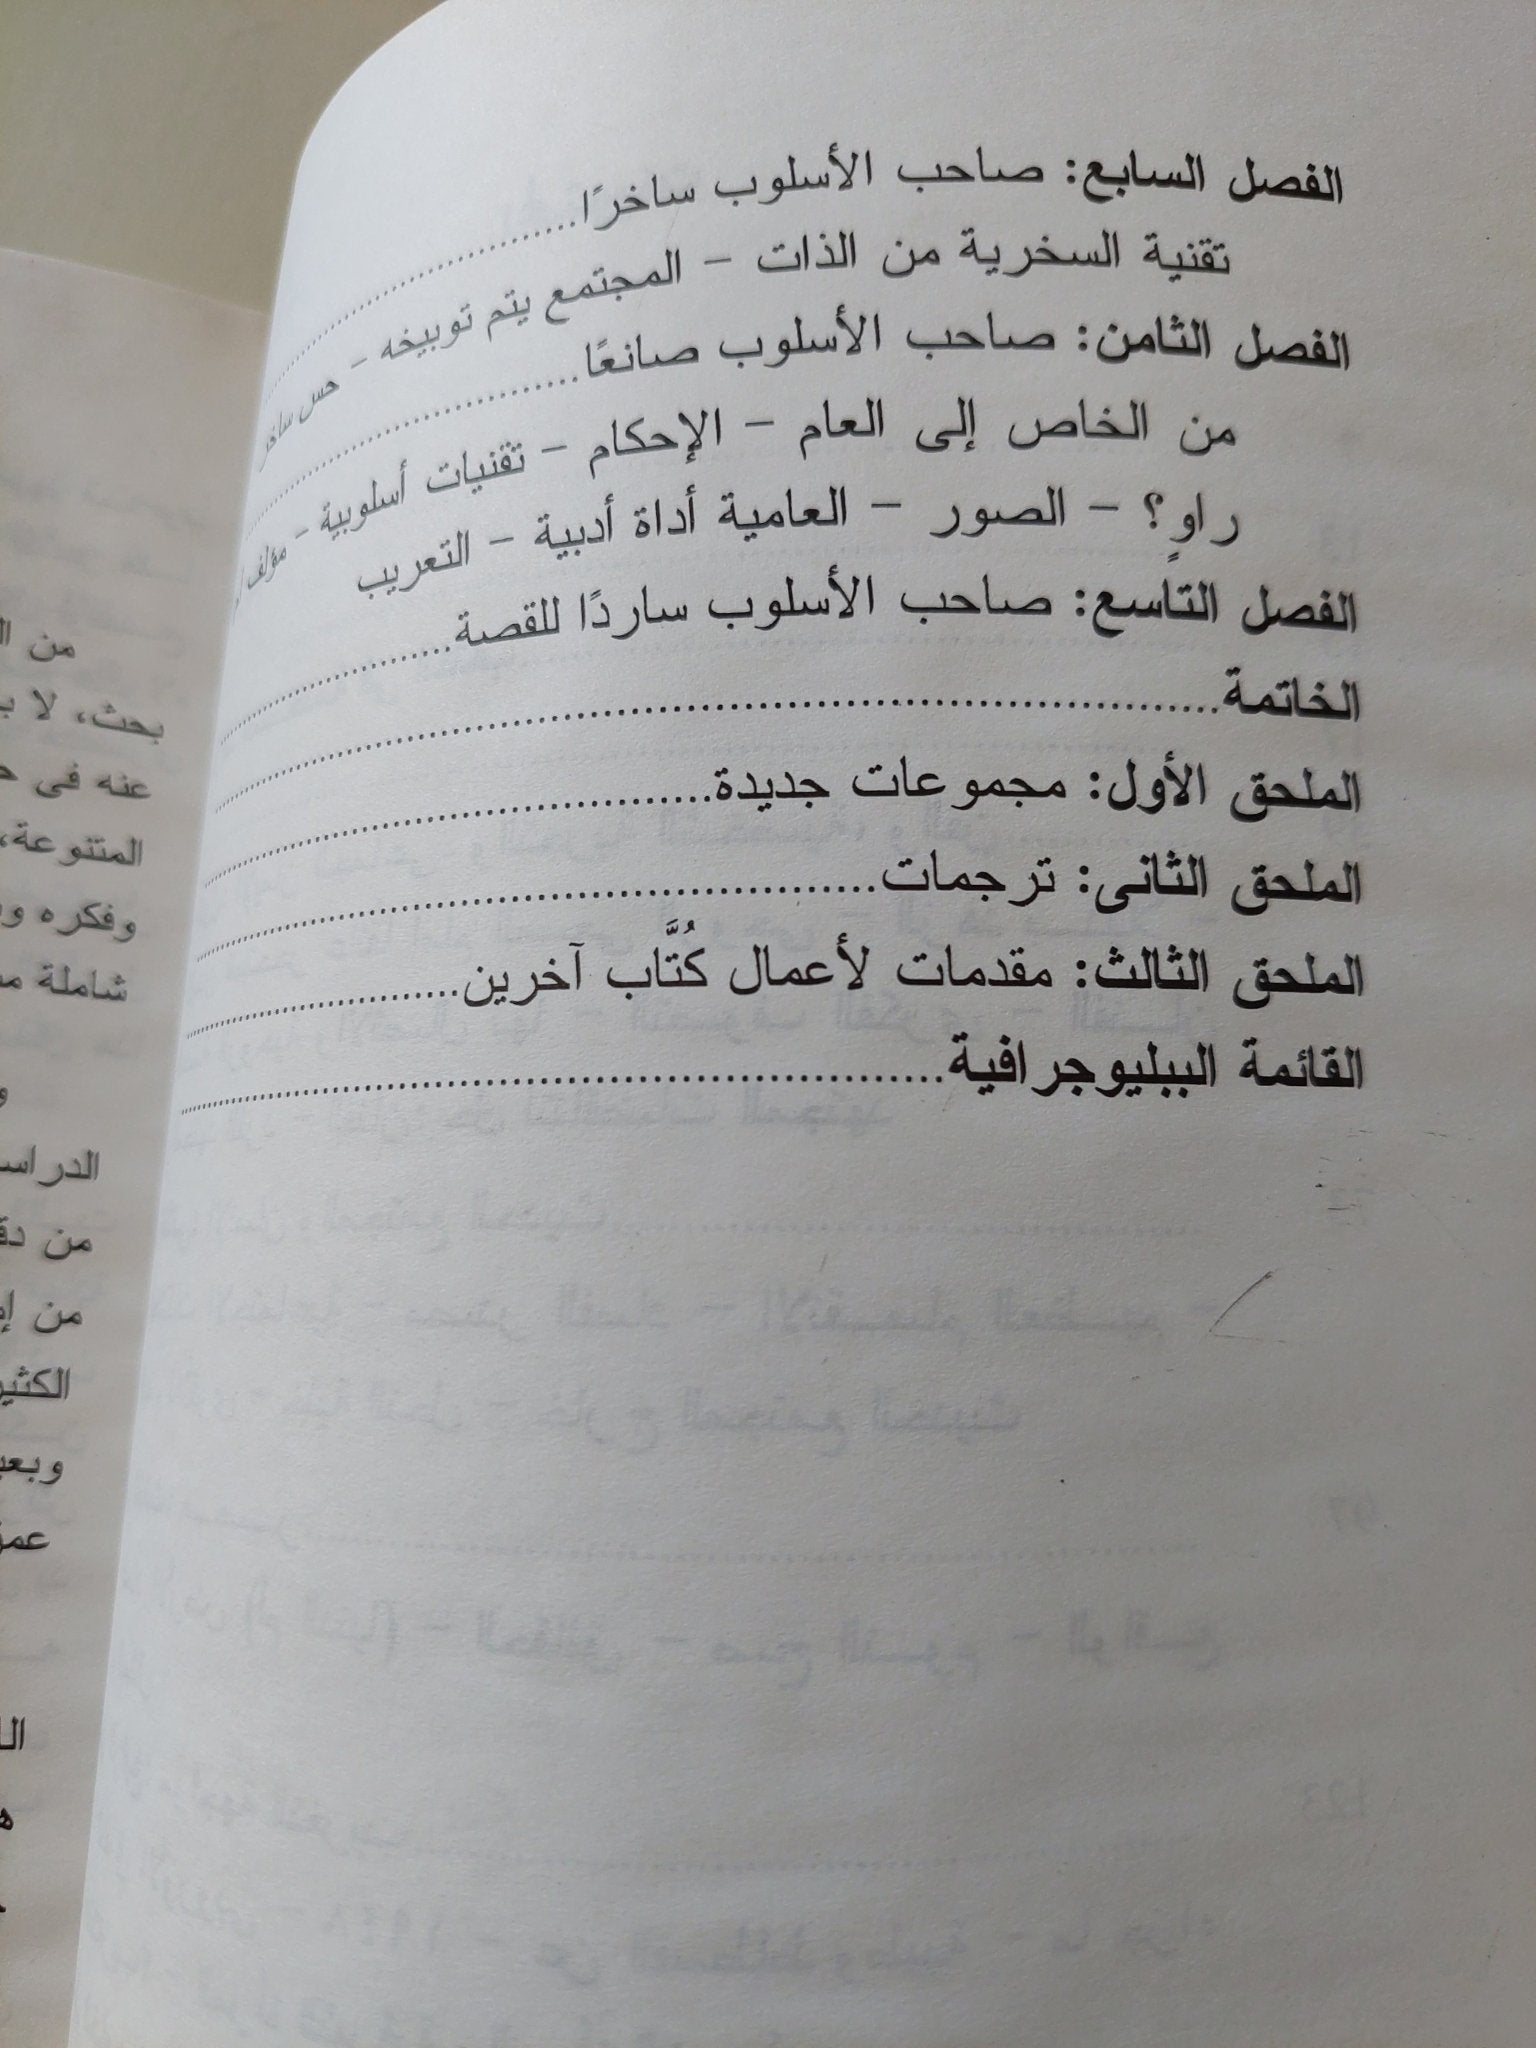 الفصل السابع: صاحب الأسلوب ساخرًا
تقنية السخرية من الذات – المجتمع يتم توبيخه – حس ساخر
الفصل الثامن: صاحب الأسلوب صانعًا
من الخاص إلى العام – الإحكام – تقنيات أسلوبية – مؤلف
راوٍ؟ – الصور – العامية أداة أدبية – التعريب
الفصل التاسع: صاحب الأسلوب ساردًا للقصة
الخاتمة
الملحق الأول: مجموعات جديدة
الملحق الثانى: ترجمات
الملحق الثالث: مقدمات لأعمال كُتَّاب آخرين
القائمة الببليوجرافية
من
بحث، لا
عنه فى
المتنوعة،
وفكره
شاملة
من
من